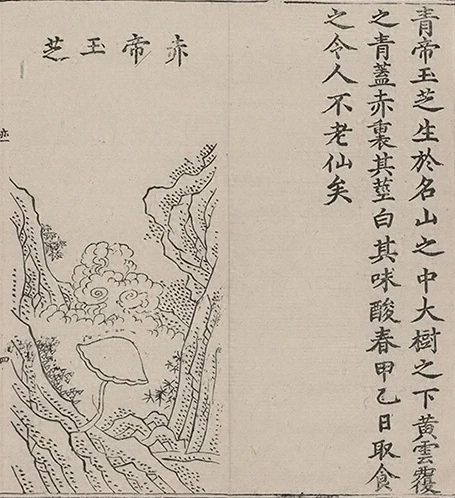 青帝玉芝生於名山之中大樹之下黃雲覆
之青蓋赤裏其莖白其味酸春甲乙日取食
之令人不老仙矣
赤帝玉芝